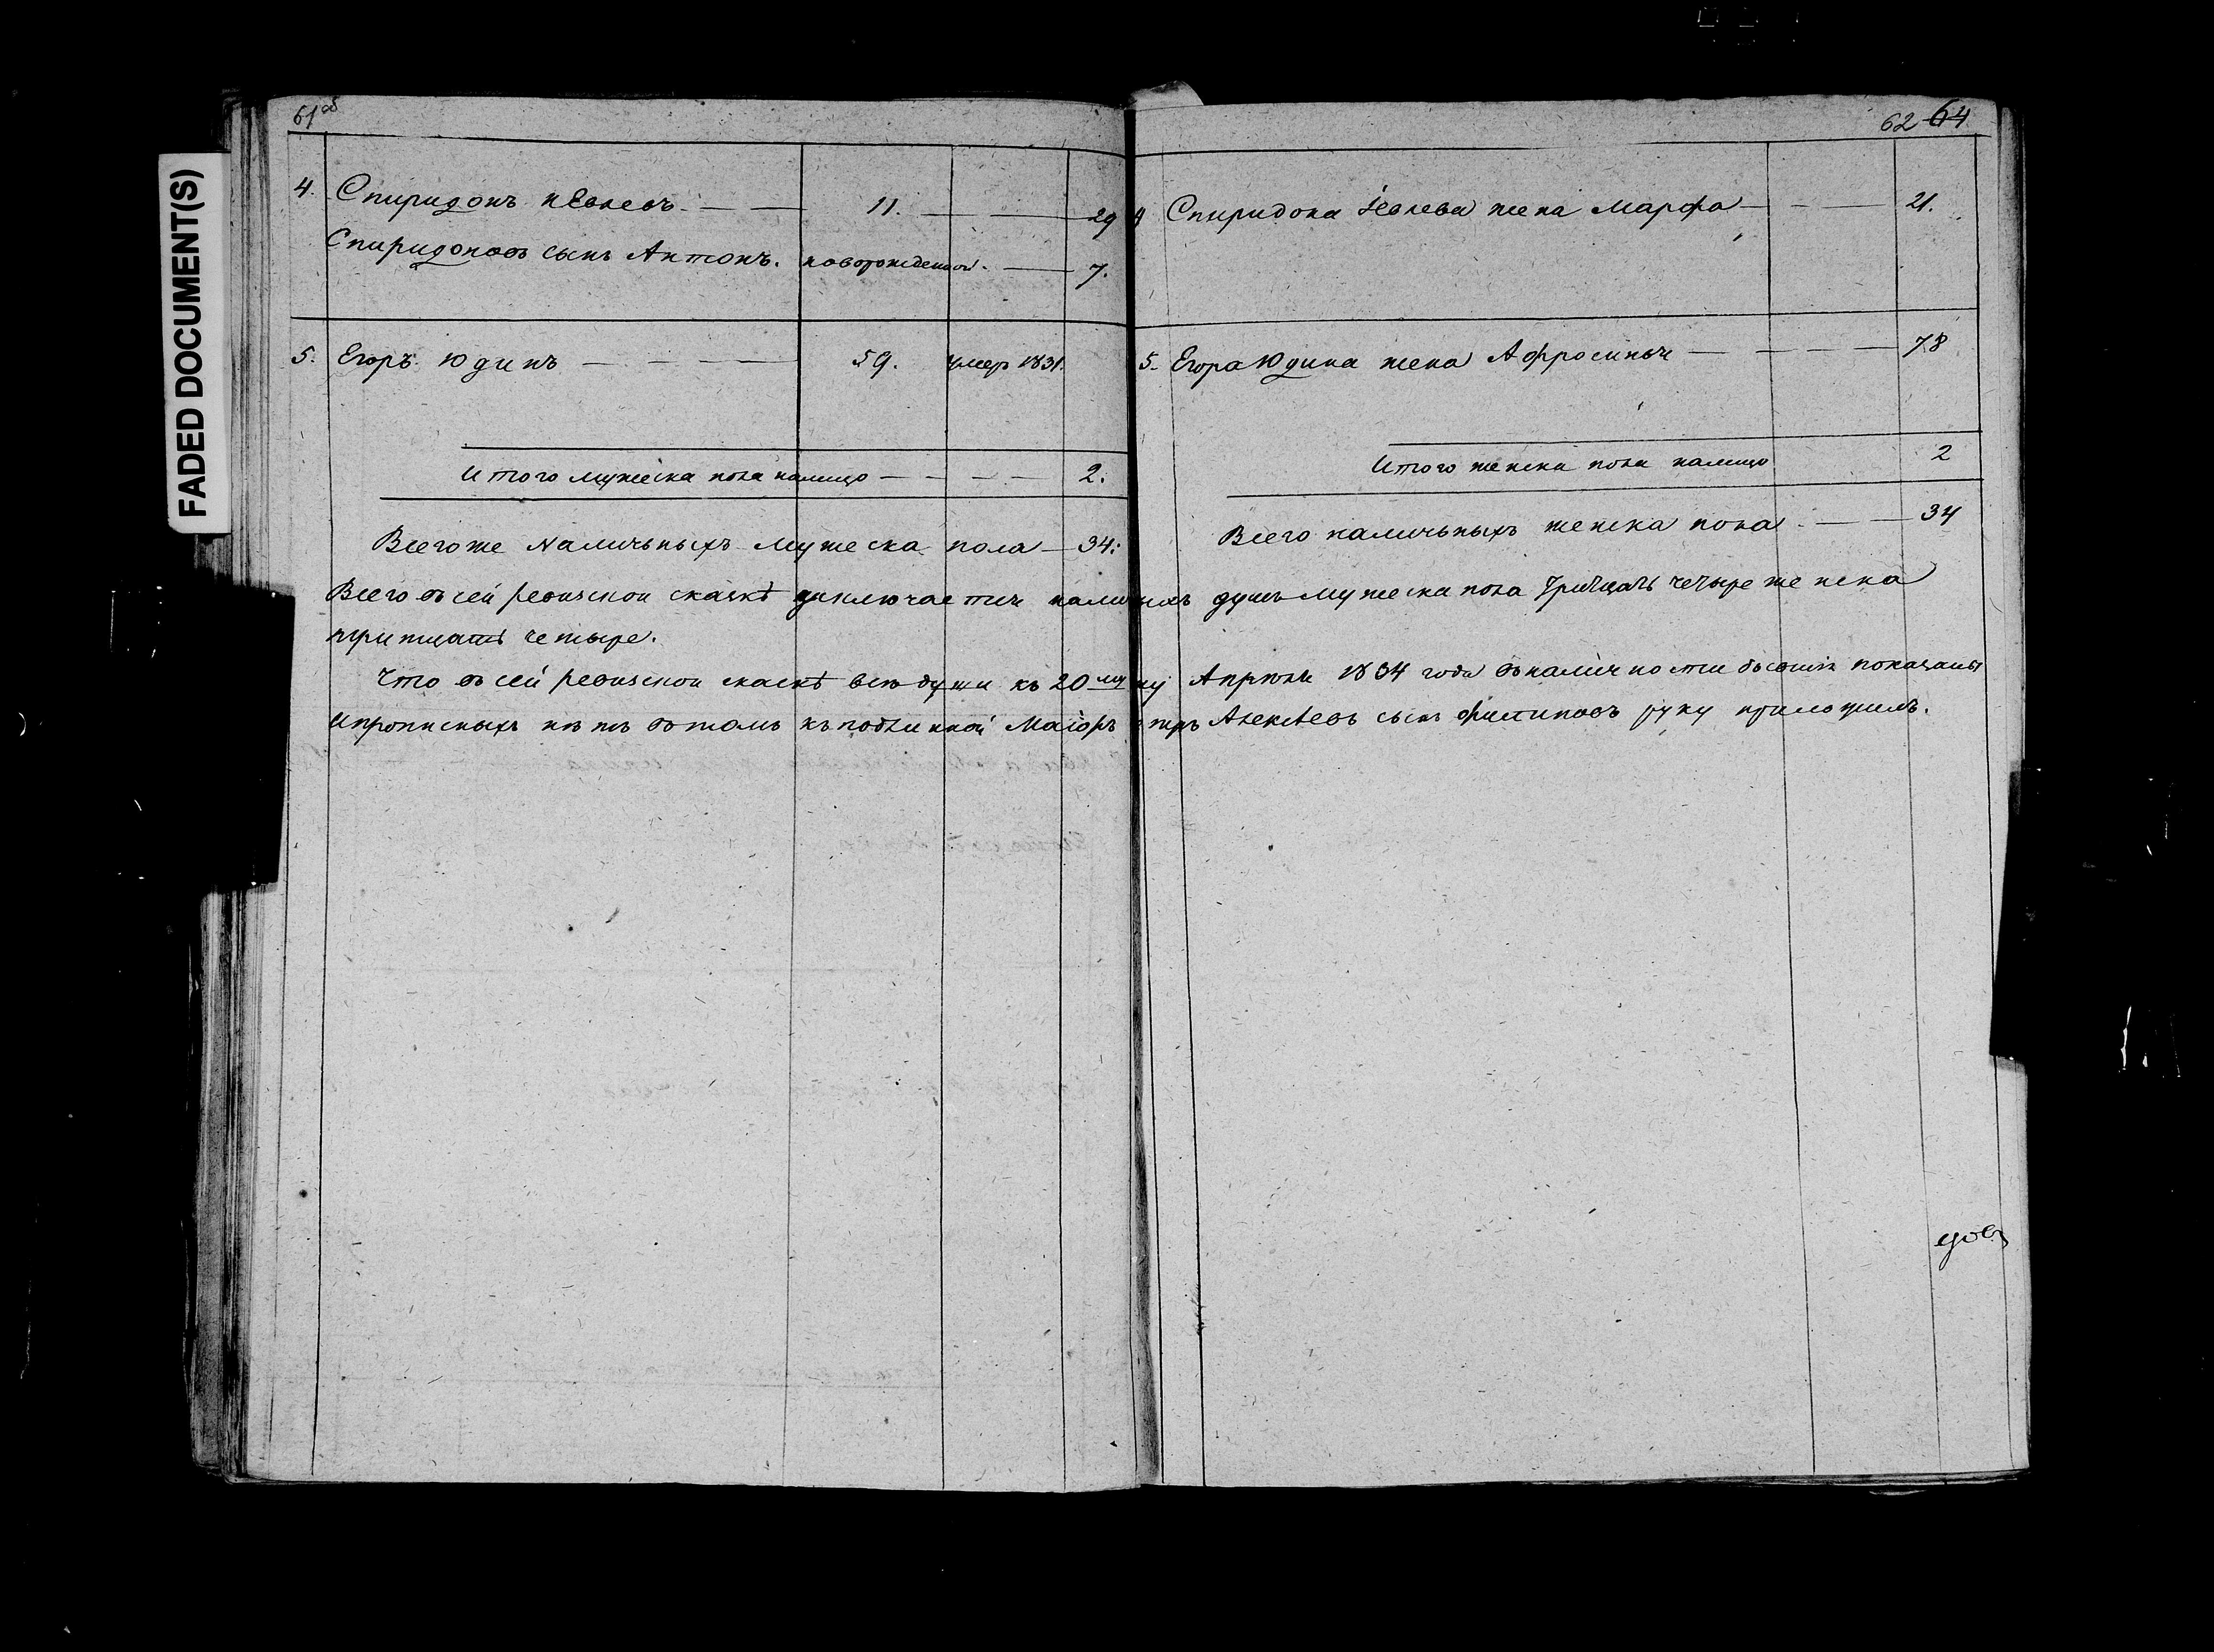 FADED DOCUMENT(S)
61об
4. Спиридонъ иЕвлевъ. 11. 29
Спиридоновъ сынъ Антонъ. новорожденной. 7.
5. Егоръ Юдинъ 59. умеръ 1831.
Итого мужеска пола налицо 2.
Всегоже Наличьныхъ мужеска пола 34:
62 64
4 Спиридона Iевлева жена Марфа 21.
5. Егора Юдина жена Афросинья 78
Итого женска пола налицо 2
Всего наличьныхъ женска пола 34
Всего въ сей ревизской скаскѣ заключается душъ мужеска пола тритцать четыре женска
тритцать четыре.
Что въ сей ревизской скаскѣ всѣ души къ 20му Апрѣля 1834 года въналичности бывшiя показаны
ипрописныхъ нѣтъ втомъ къподлинной Маiоръ Алексѣевъ сынъ Филиповъ руку приложилъ.